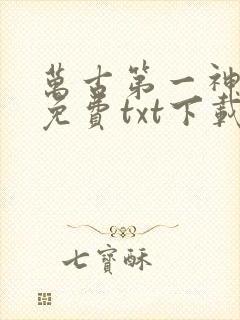 萬古第一神
免費txt下載
七寶酥